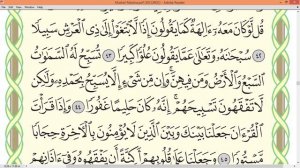 قُل لَّوْ كَانَ مَعَهُۥٓ ءَالِهَةٌ كَمَا يَقُولُونَ إِذًا لَّٱبْتَغَوْا۟ إِلَىٰ ذِى ٱلْعَرْشِ سَبِيلًا
٤٢ سُبْحَٰنَهُۥ وَتَعَٰلَىٰ عَمَّا يَقُولُونَ عُلُوًّا كَبِيرًا ٤٣ تُسَبِّحُ لَهُ ٱلسَّمَٰوَٰتُ
ٱلسَّبْعُ وَٱلْأَرْضُ وَمَن فِيهِنَّ وَإِن مِّن شَىْءٍ إِلَّا يُسَبِّحُ بِحَمْدِهِۦ وَلَٰكِن
لَّا تَفْقَهُونَ تَسْبِيحَهُمْ إِنَّهُۥ كَانَ حَلِيمًا غَفُورًا ٤٤ وَإِذَا قَرَأْتَ
ٱلْقُرْءَانَ جَعَلْنَا بَيْنَكَ وَبَيْنَ ٱلَّذِينَ لَا يُؤْمِنُونَ بِٱلْءَاخِرَةِ حِجَابًا
مَّسْتُورًا ٤٥ وَجَعَلْنَا عَلَىٰ قُلُوبِهِمْ أَكِنَّةً أَن يَفْقَهُوهُ وَفِىٓ ءَاذَانِهِمْ